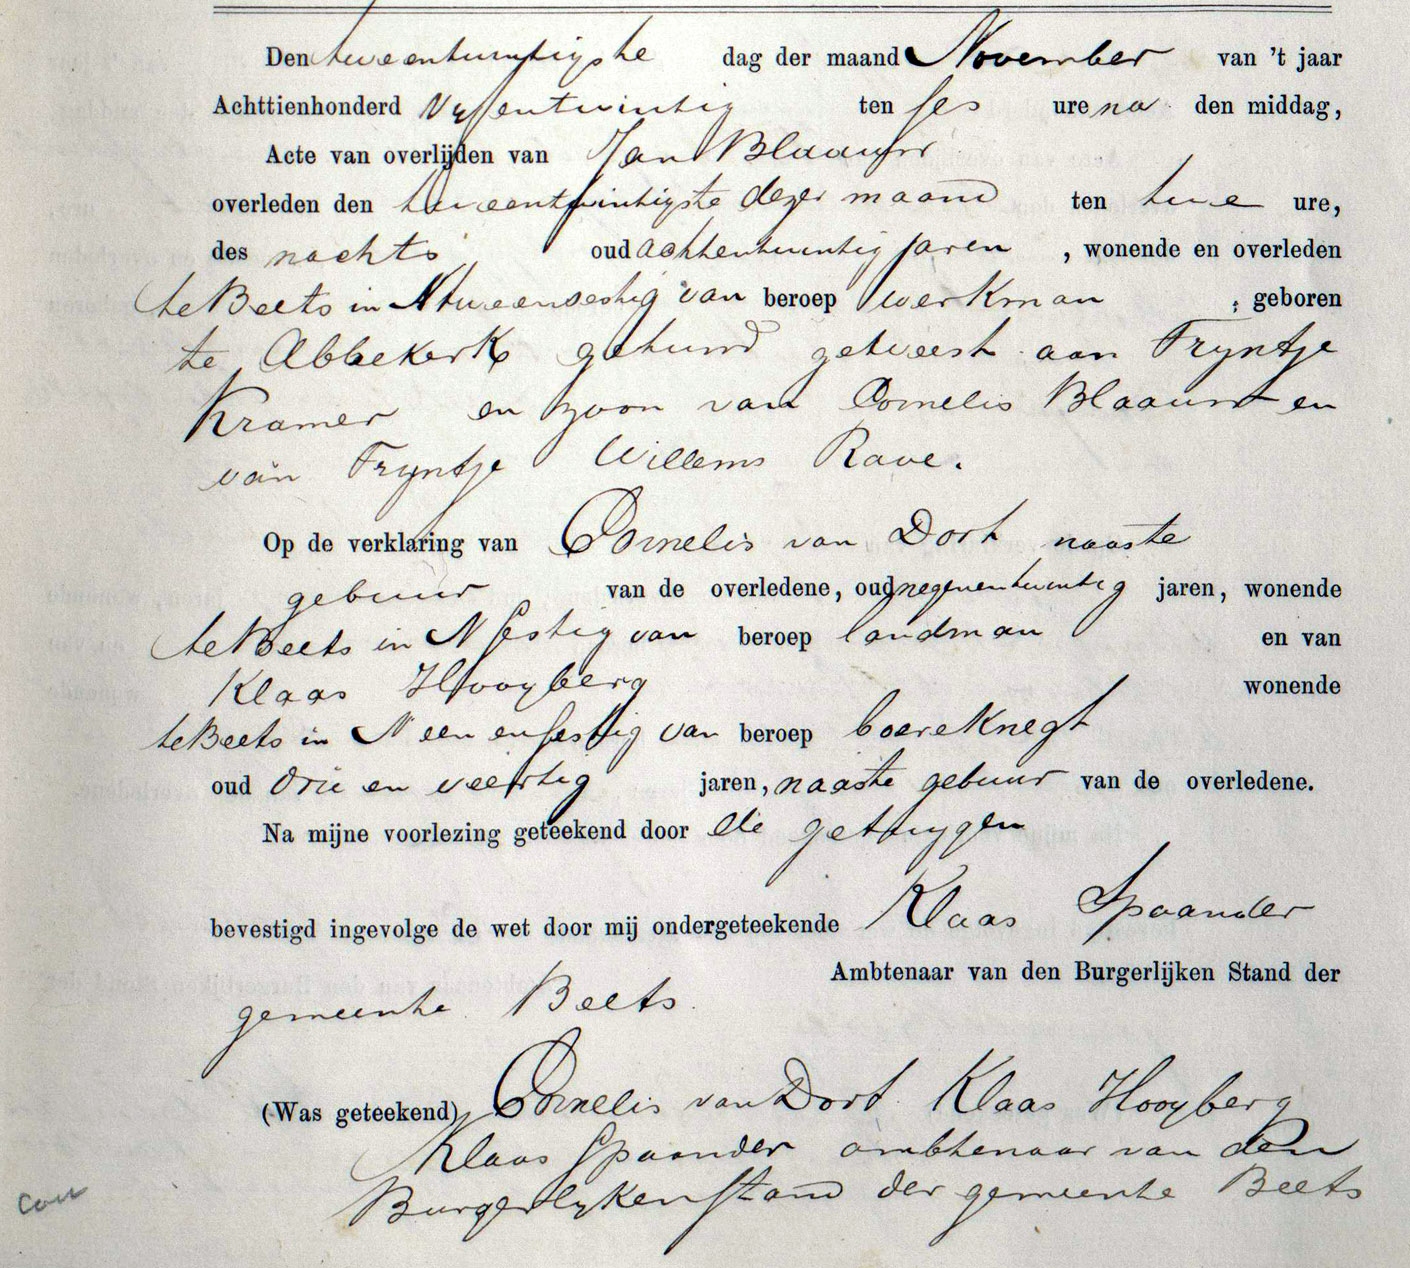 Den tweentwintigste dag der maand November van 't jaar
Achttienhonderd Vyfentwintig ten ses ure na den middag,
Acte van overlijden van Jan Blaauw
overleden den tweentwintigste dezer maand ten twe ure,
des nachts oud achtentwintig jaren , wonende en overleden
te Beets in N tweensestig van beroep werkman , geboren
te Abbekerk getuwd geweest aan Tryntje
Kramer en zoon van Cornelis Blaauw en
van Tryntje Willems Rave.
Op de verklaring van Cornelis van Dort naaste
gebuur van de overledene, oud negenentwintig jaren, wonende
te Beets in N sestig van beroep landman en van
Klaas Hooyberg wonende
te Beets in N een en sestig van beroep boereknegt
oud drie en veertig jaren, naaste gebuur van de overledene.
Na mijne voorlezing geteekend door de getuygen
bevestigd ingevolge de wet door mij ondergeteekende Klaas Spaander
Ambtenaar van den Burgerlijken Stand der
gemeente Beets.
(Was geteekend) Cornelis van Dort. Klaas Hooyberg
Klaas Spaander ambtenaar van den
Burgerlyken stand der gemeente Beets